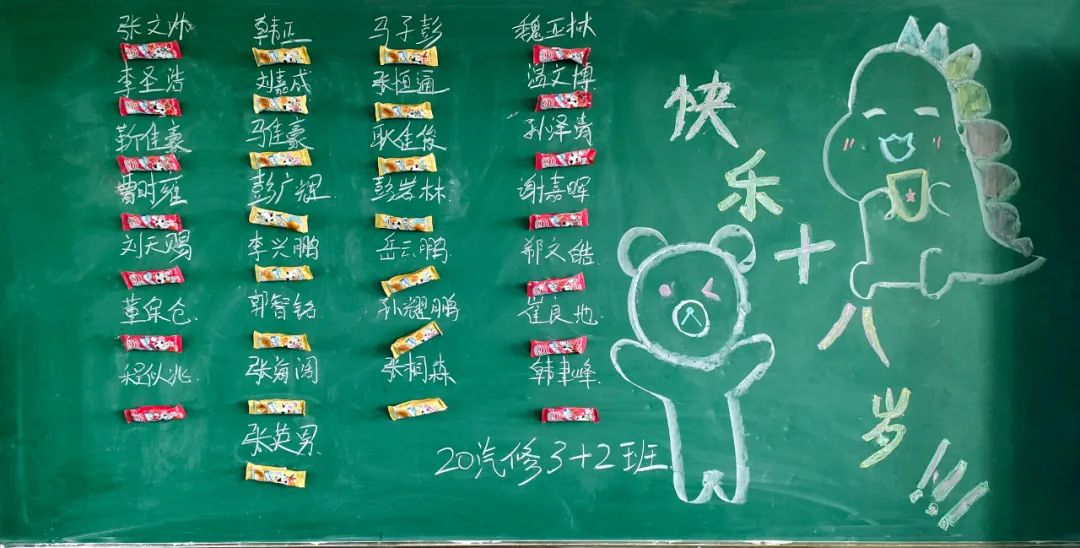 张文帅 韩正 马子彭 魏亚林
李圣浩 刘嘉成 张恒通 温文博
靳佳豪 马佳豪 耿佳俊 孙泽涛
曹时雍 彭广辉 彭岩林 谢嘉晖
刘天赐 李兴鹏 岳云鹏 郑文皓
董保仓 郭智铭 孙耀鹏 崔良地
程似兆 张海阔 张桐森 韩聿峰
张英男
20汽修3+2班
快
乐
十
八
岁!!!